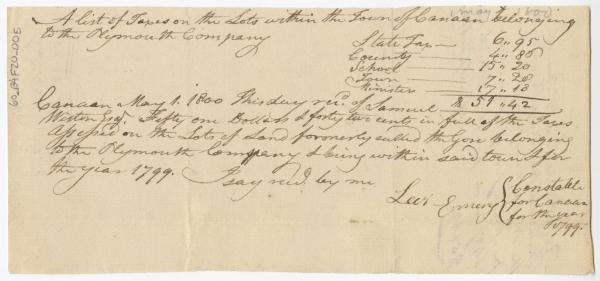 (May 1, 1800)
A list of Taxes on the Lots within the Town of Canaan belonging
to the Plymouth Company
State Tax — 6 " 95
County — 4 " 86
School — 15 " 20
Town — 7 " 28
Minister — 17 " 13
$ 51 " 42
Canaan May 1. 1800 This day recd. of Samuel
Weston Esqr. Fifty one Dollars & forty two cents in full of the Taxes
Assessed on the Lots of Land formerly called the Gore belonging
to the Plymouth Company & being within said town & for
the year 1799. I say recd. by me
Levi Emery { Constable
for Canaan
for the year
1799.